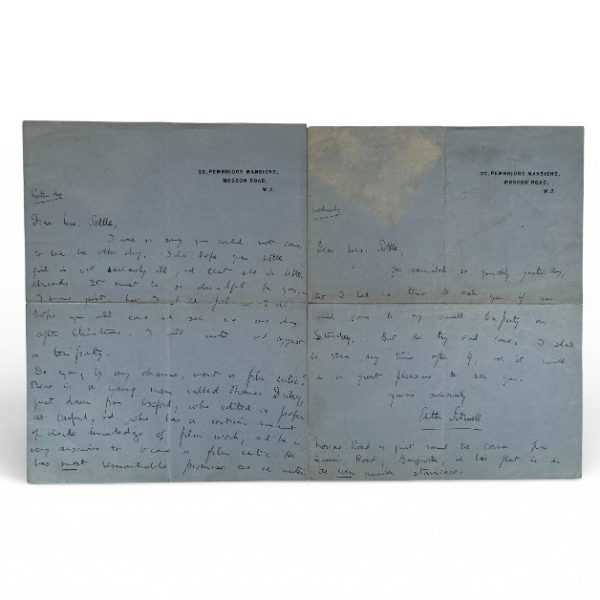 22, PEMBRIDGE MANSIONS,
MOSCOW ROAD,
W.2.
Dear Mrs. Settle,
I was so sorry you could not come
to tea the other day. I do hope your little
girl is not seriously ill, and that she is better
already. It must be so dreadful for you.
I
hope you will come and see me one day
after Christmas. I will write and suggest
a tea party.
Do you, by any chance, want a film critic?
There is a young man called Thomas
just down from Oxford, who edited a paper
at Oxford, and who has a certain amount
of inside knowledge of film work, and he is
very anxious to become a film critic. He
has most remarkable promise as a writer
22, PEMBRIDGE MANSIONS,
MOSCOW ROAD,
W.2.
Wednesday
Dear Mrs. Settle,
You vanished so quickly yesterday,
that I had no time to ask you if you
would come to my small tea party on
Saturday. But do try and come, I shall
be there any time after 4, and it would
be a great pleasure to see you.
Yours sincerely
Edith Sitwell
Moscow Road is just round the corner from
Queen's Road, Bayswater, and this flat is on
the staircase.